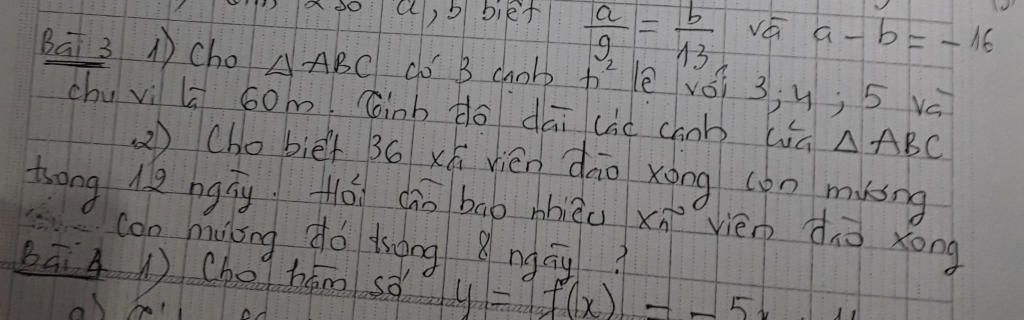 2 số a, b biết a/9 = b/13 và a - b = -16
Bài 3 1) Cho △ABC có 3 cạnh tỉ lệ với 3; 4; 5 và
chu vi là 60m. Tính độ dài các cạnh của △ABC
2) Cho biết 36 xã viên đào xong con mương
trong 12 ngày. Hỏi cần bao nhiêu xã viên đào xong
con mương đó trong 8 ngày?
Bài 4 1) Cho hàm số y = f(x) = - 5x
a)